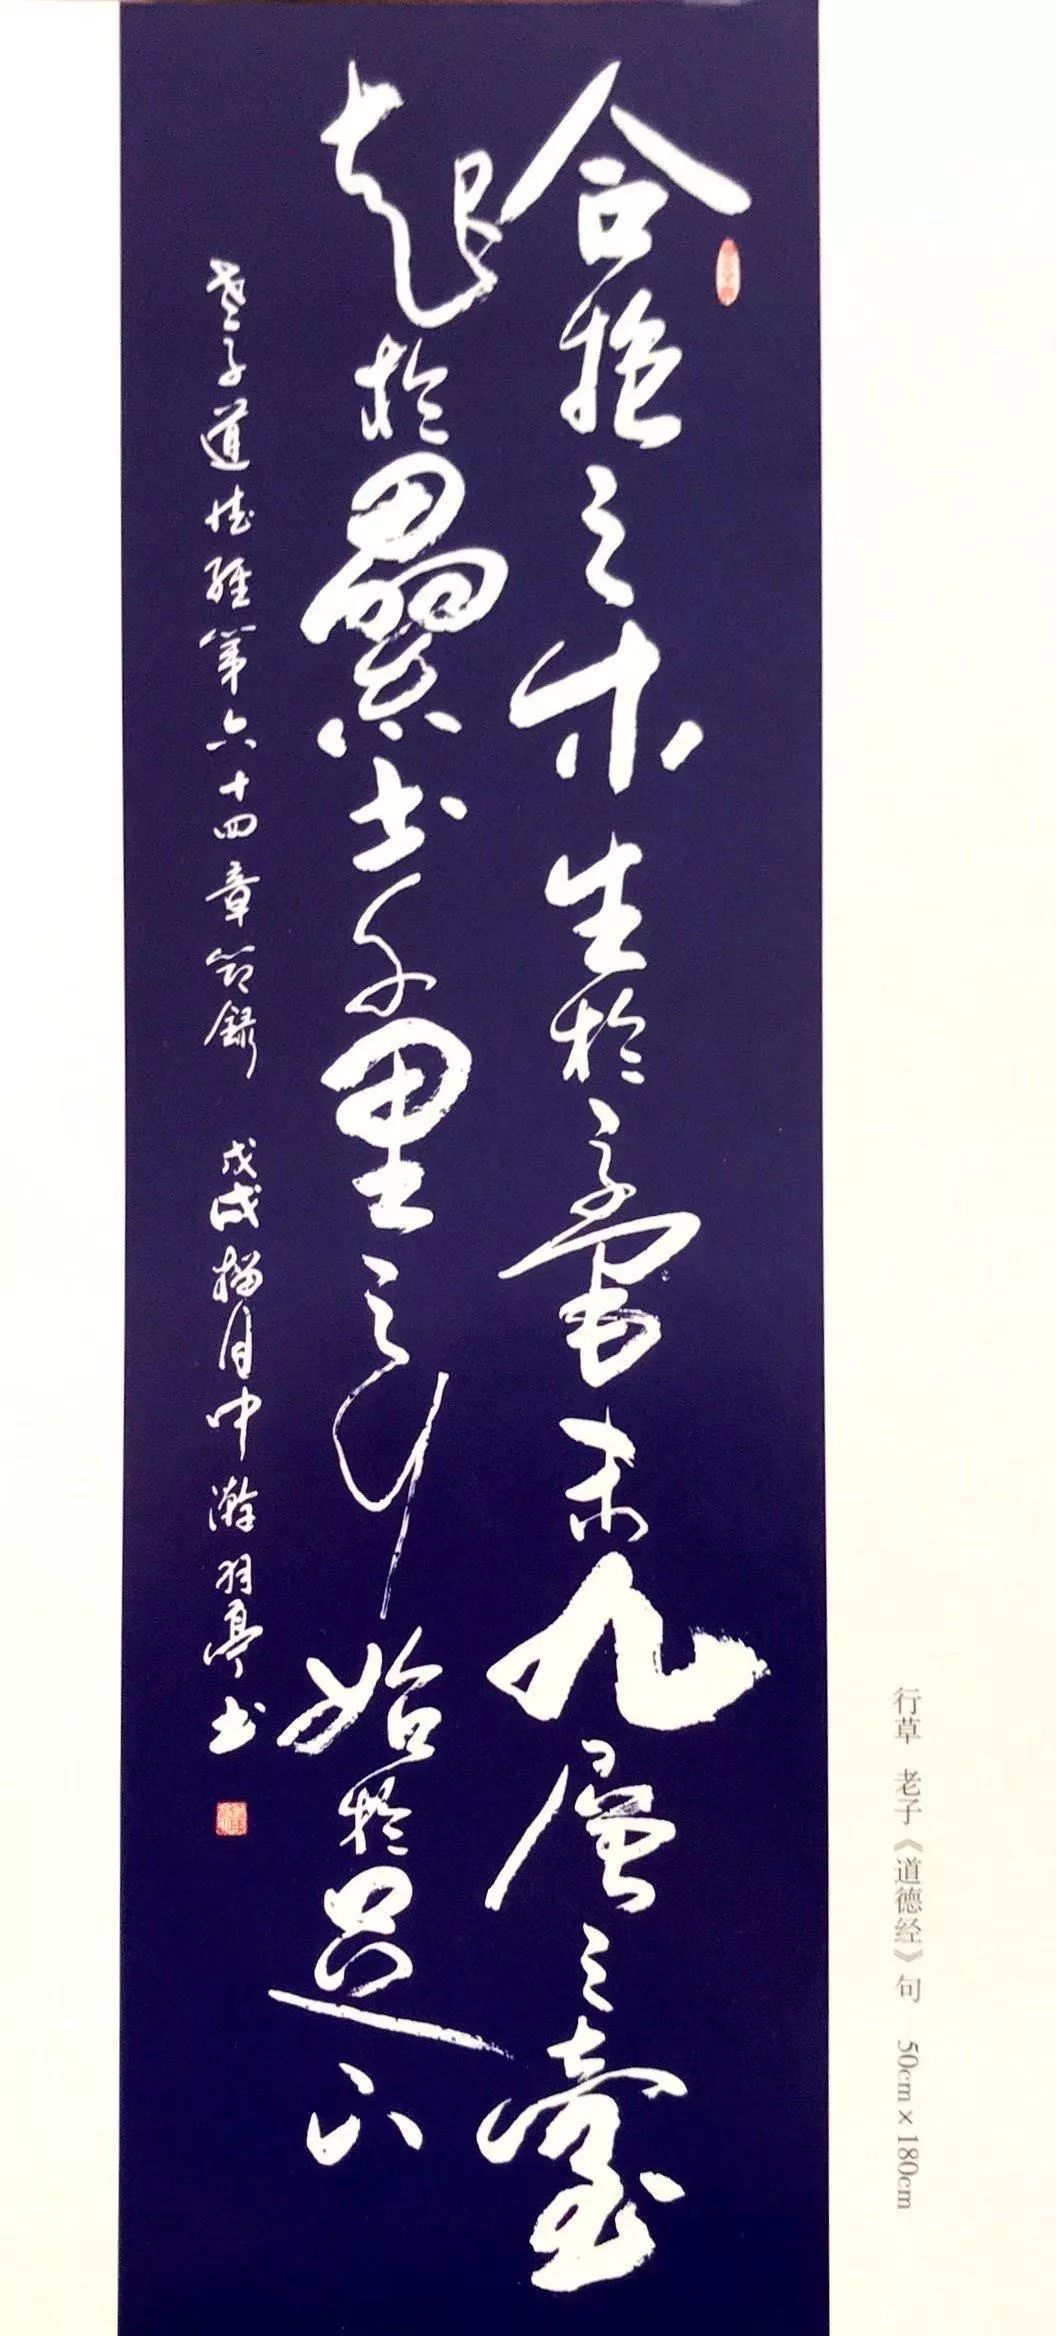 合抱之木生於毫末九層之臺
起於累土千里之行始於足下
老子道德經第六十四章節錄 戊戌榴月中瀚羽亭书
行草 老子《道德经》句 50cm×180cm